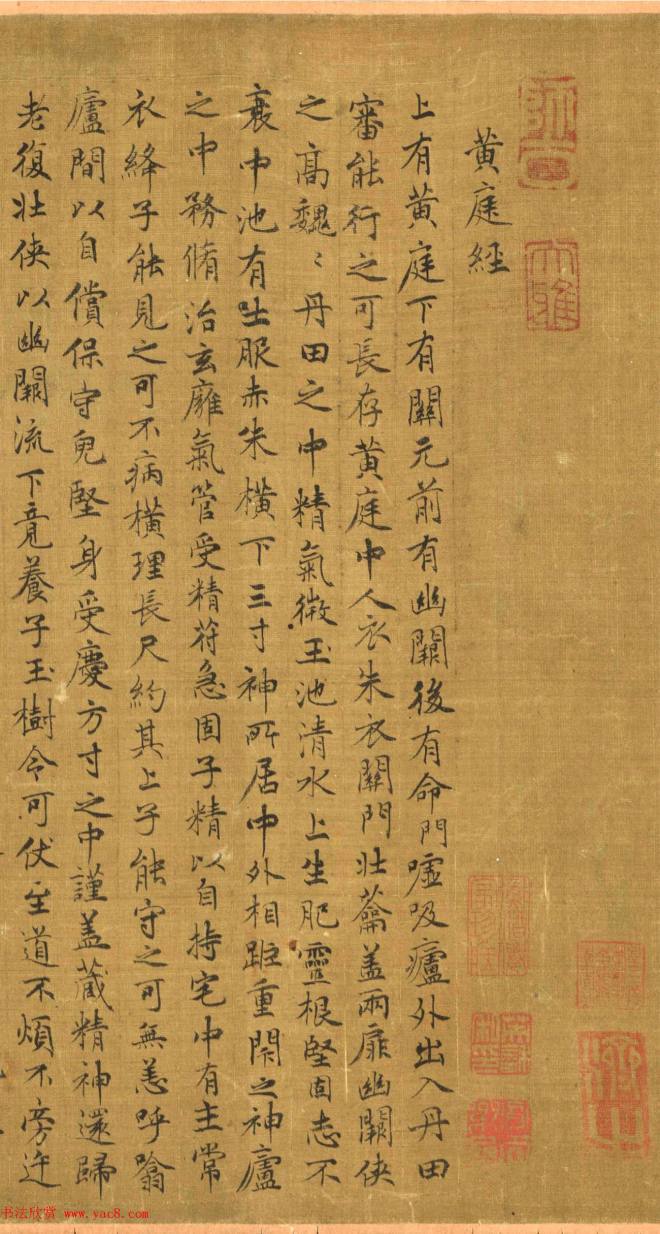 黄庭經
上有黄庭下有關元前有幽闕後有命門噓吸廬外出入丹田
審能行之可長存黄庭中人衣朱衣關門壯蘥盖兩扉幽闕俠
之高魏〻丹田之中精氣微玉池清水上生肥靈根堅固志不
衰中池有士服赤朱橫下三寸神所居中外相距重閇之神廬
之中務脩治玄廱氣管受精苻急固子精以自持宅中有主常
衣絳子能見之可不病橫理長尺約其上子能守之可無恙呼噏
廬間以自償保守皃堅身受慶方寸之中謹盖藏精神還歸
老復壯俠以幽闕流下竟養子玉樹令可伏至道不煩不旁迕
大雅
书法欣赏 www.yac8.com